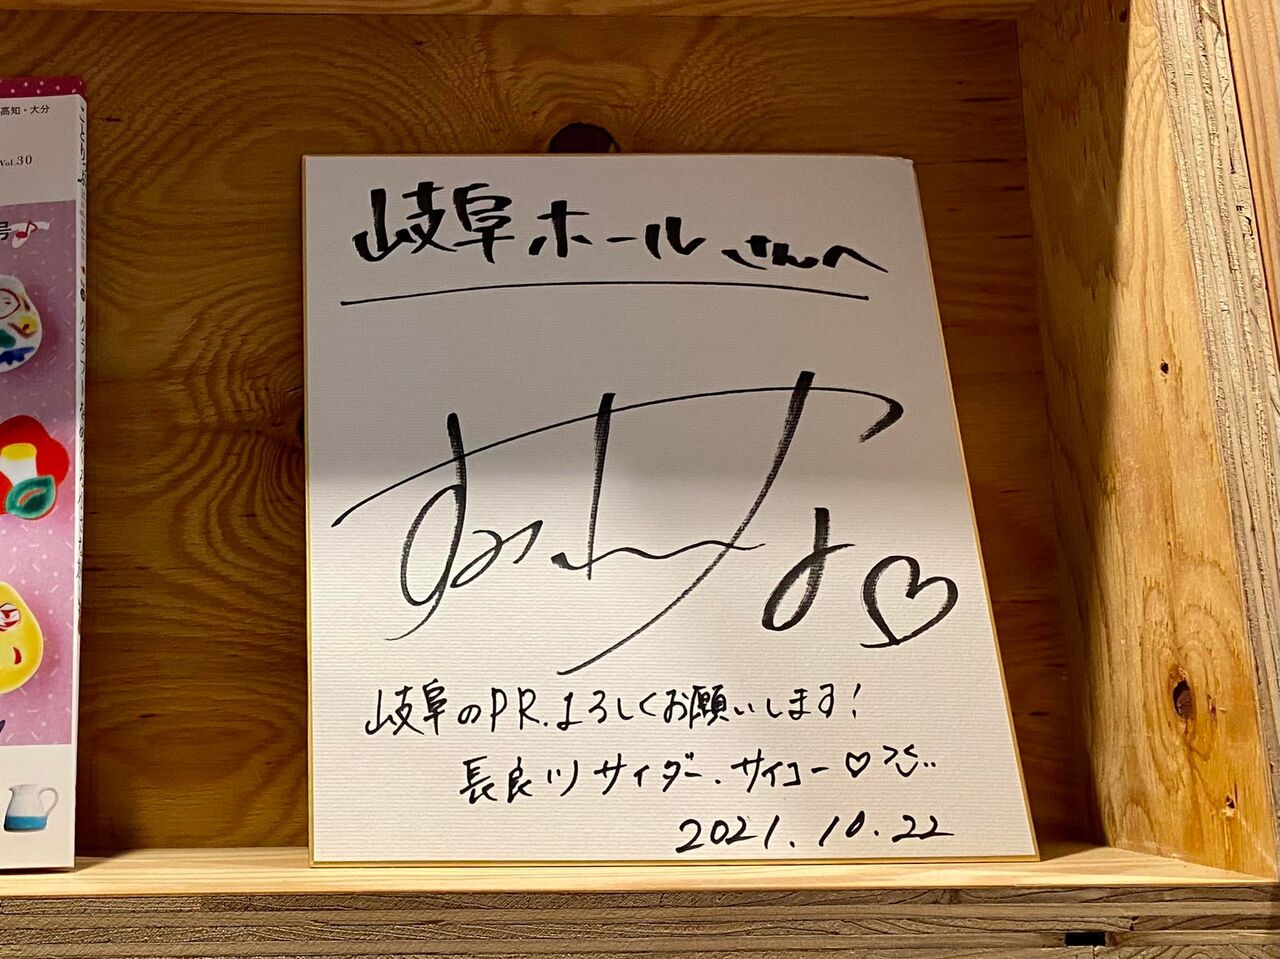 高知・大分
Vol.30
号♪
岐阜ホールさんへ
岐阜のPR.よろしくお願いします!
長良川サイダー.サイコー♡
2021.10.22